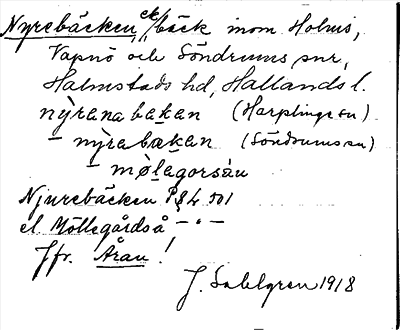 Nyrebäcken, ck/bäck inom Holms,
Vapnö och Söndrums snr,
Halmstads hd, Hallands l.
nỳrenabækan (Harplinge sn)
– nỳrabækan (Söndrums sn)
– mølagorsáu
Njurebäcken PgL 501
el. Möllegårdså – " –
Jfr. Åran !
J. Sahlgren 1918